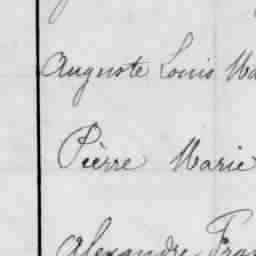 Auguste Louis Ma
Pierre Marie
Alexandre Fran